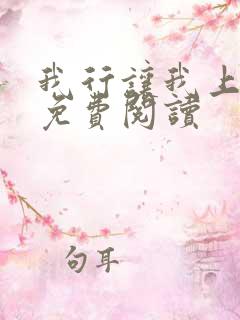 我行讓我上
免費閱讀
句耳